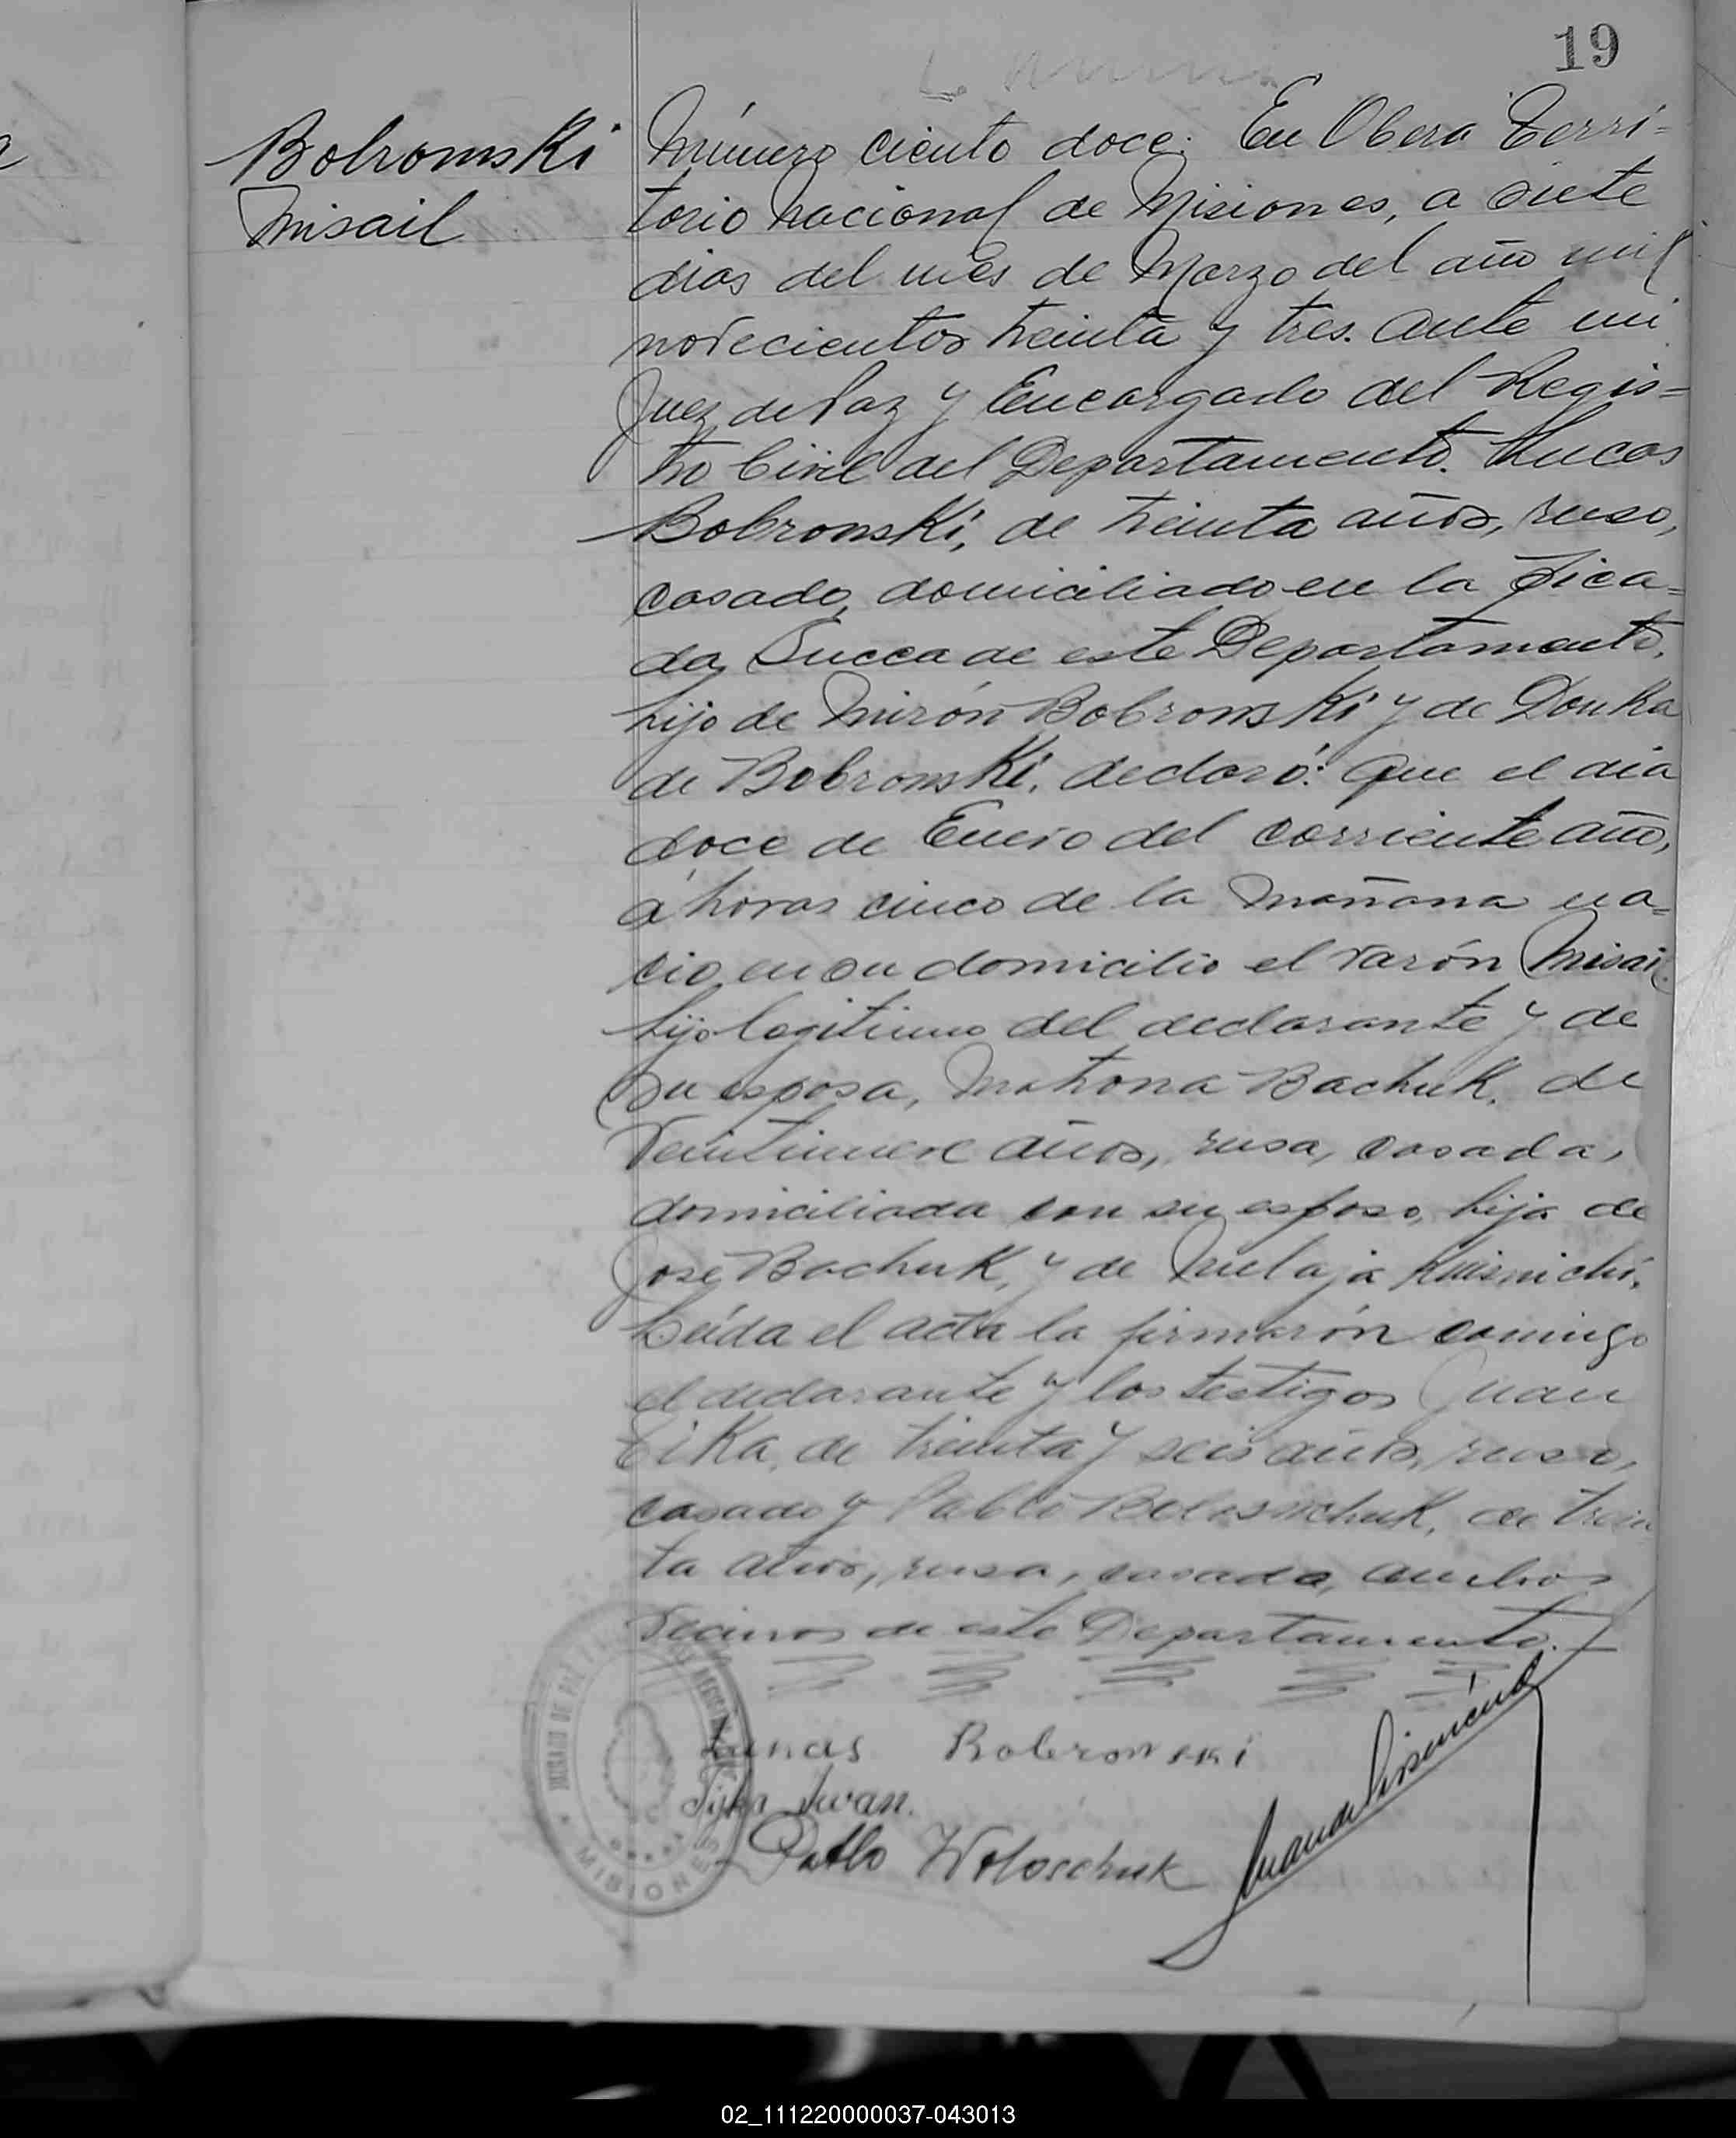 19
Bobrowski
Misail
Número ciento doce. En Obera Terri-
torio Nacional de Misiones, a siete
dias del mes de Marzo del año mil
novecientos treinta y tres. Ante mi
Juez de Paz y Encargado del Regis-
tro Civil del Departamento. Lucas
Bobrowski, de treinta años, ruso,
casado, domiciliado en la Pica-
da Sueca de este Departamento,
hijo de Mirón Bobrowski y de Donka
de Bobrowski, declaró: Que el dia
doce de Enero del corriente año,
á horas cinco de la mañana na-
cio en su domicilio el varón Misail
hijo legitimo del declarante y de
su esposa, Matrona Bachuk, de
veintinueve años, rusa, casada,
domiciliada con su esposo, hija de
José Bachuk, y de Melaja
Leída el acta la firmarón conmigo
el declarante y los testigos Juan
Tika, de treinta y seis años, ruso,
casado y Pablo de trein
ta años, rusa, casado, ambos
vecinos de este Departamento.
Lucas Bobrowski
Tyka Iwan.
Pablo Woloschuk
JUZGADO DE PAZ
MISIONES
02_111220000037-043013